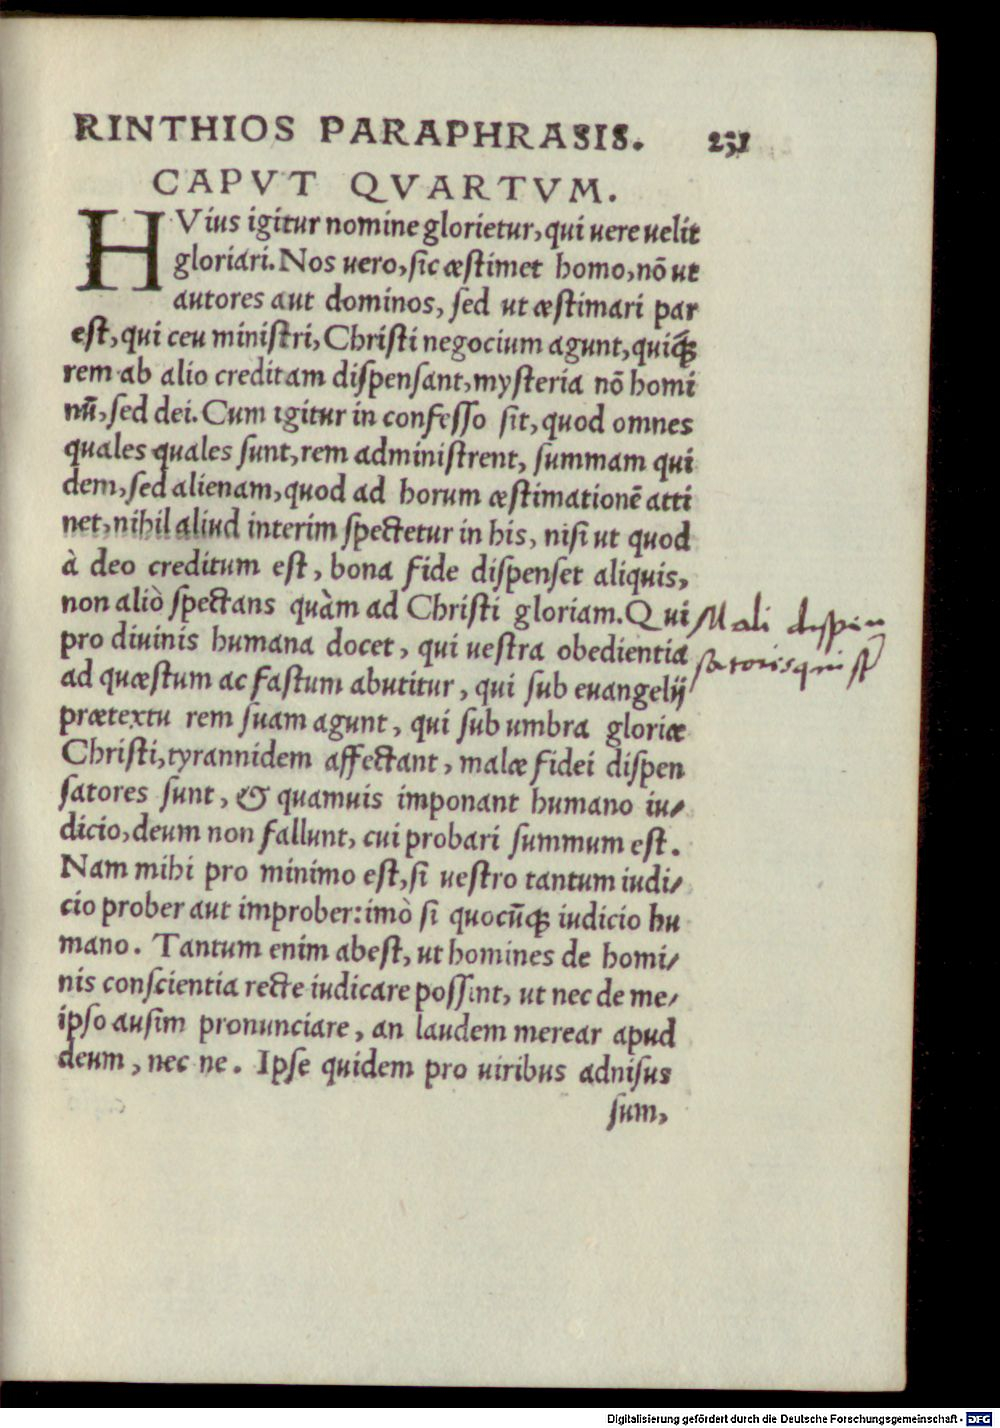 RINTHIOS PARAPHRASIS. 231
CAPVT QVARTVM.
HVius igitur nomine glorietur, qui uere uelit
gloriari. Nos uero, ſic æſtimet homo, nō ut
autores aut dominos, ſed ut æſtimari par
eſt, qui ceu miniſtri, Chriſti negocium agunt, quiq́ꝫ
rem ab alio creditam diſpenſant, myſteria nō homi
nū, ſed dei. Cum igitur in confeſſo ſit, quod omnes
quales quales ſunt, rem adminiſtrent, ſummam qui
dem, ſed alienam, quod ad horum æſtimationē atti
net, nihil aliud interim ſpectetur in his, niſi ut quod
à deo creditum eſt, bona fide diſpenſet aliquis,
non aliò ſpectans quàm ad Chriſti gloriam. Qui
pro diuinis humana docet, qui ueſtra obedientia
ad quæſtum ac faſtum abutitur, qui ſub euangelij
prætextu rem ſuam agunt, qui ſub umbra gloriæ
Chriſti, tyrannidem affectant, malæ fidei diſpen
ſatores ſunt, & quamuis imponant humano iu-
dicio, deum non fallunt, cui probari ſummum eſt.
Nam mihi pro minimo eſt, ſi ueſtro tantum iudi-
cio prober aut improber: imò ſi quocūqꝫ iudicio hu
mano. Tantum enim abeſt, ut homines de homi-
nis conſcientia recte iudicare poſſint, ut nec de me-
ipſo auſim pronunciare, an laudem merear apud
deum, nec ne. Ipſe quidem pro uiribus adniſus
ſum,
Mali dispen
satores qui st
Digitalisierung gefördert durch die Deutsche Forschungsgemeinschaft - DFG